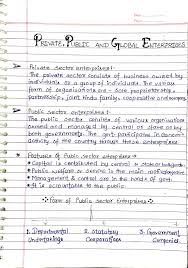 PRIVATE, PUBLIC AND GLOBAL ENTERPRISES
Private Sector enterprises:
The private sector consists of business owned by
individuals or a group of individuals. The various
form of organisations are - Sole proprietorship,
partnership, joint hindu family, cooperative and company
Public Sector enterprises:
The public sector consists of various organisations
owned and managed by central or state or
both governments. The govt. participates in
activity of the country through these enterprises
Features of Public Sector enterprises
Capital is contributed by central or state
Public welfare or service is the main
Management & control are in the hands of govt.
It is accountable to the public
Form of Public Sector enterprises
1. Departmental 2. Statutory 3. Government
Undertakings Corporations Companies